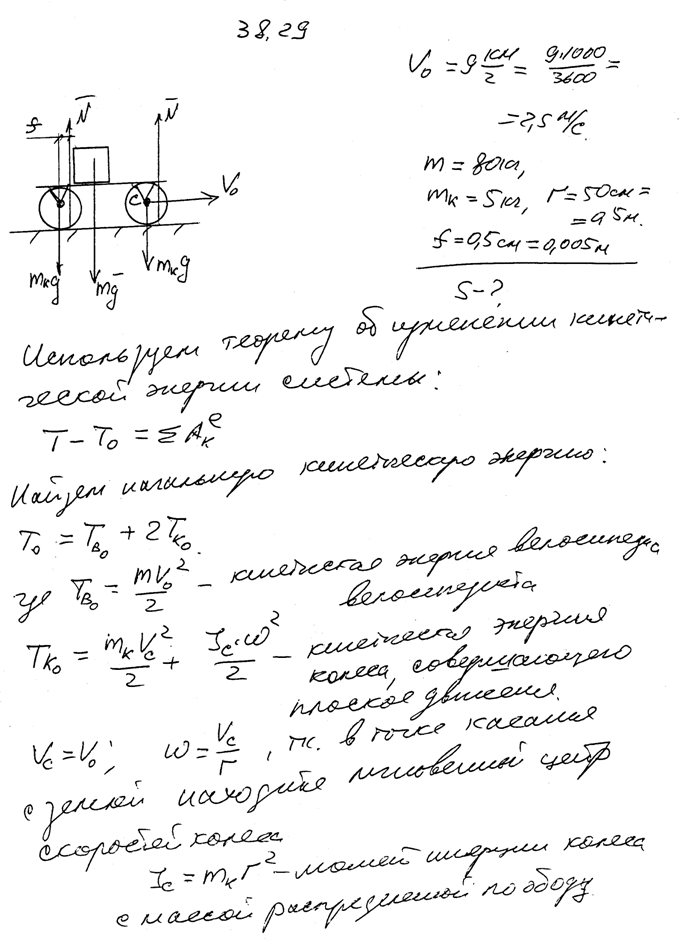 38.29
V₀ = 9 км/г = 9.1000/3600 =
= 2,5 м/с.
m = 80кг,
mк = 5кг, r = 50см =
= 0,5м.
f = 0,5см = 0,005м
S - ?
f N̅ N̅
C V₀
mкg mg̅ mкg
Используем теорему об изменении кинети-
ческой энергии системы:
T - T₀ = ΣAкᵉ
Найдем начальную кинетическую энергию:
T₀ = Tв₀ + 2Tк₀.
где Tв₀ = mV₀²/2 - кинетическая энергия велосипеда
велосипедиста
Tк₀ = mкVc²/2 + Jc·ω²/2 - кинетическая энергия
колеса, совершающего
плоское движение.
Vc = V₀; ω = Vc/r, т.к. в точке касания
с землей находится мгновенный центр
скоростей колеса
Jc = mкr² - момент инерции колеса
с массой распределенной по ободу.